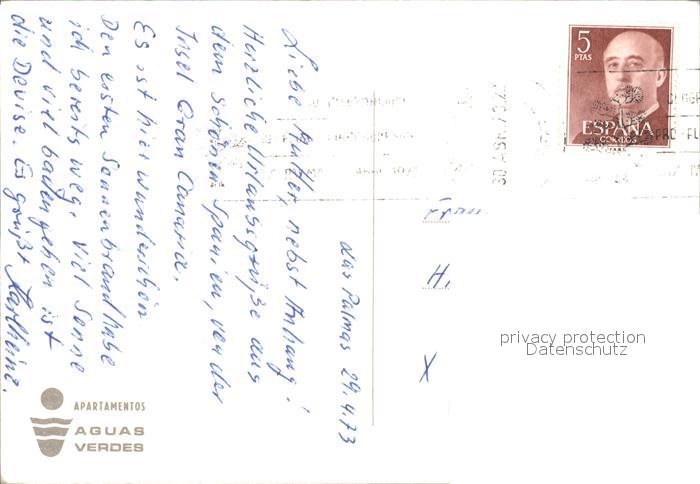 das Palmas 29.4.73
Liebe Mutter, nebst Anhang!
Herzliche Urlaubsgrüße aus
dem Schönen Spanien, von der
Insel Gran Canaria.
Es ist hier wunderschön
Den ersten Sonnenbrand habe
ich bereits weg. Viel Sonne
und viel baden gehen ist
die Devise. Es grüßt Karlheinz.
5
PTAS
ESPAÑA
CORREOS
30 ABR. 73
H.
X
privacy protection
Datenschutz
APARTAMENTOS
AGUAS
VERDES